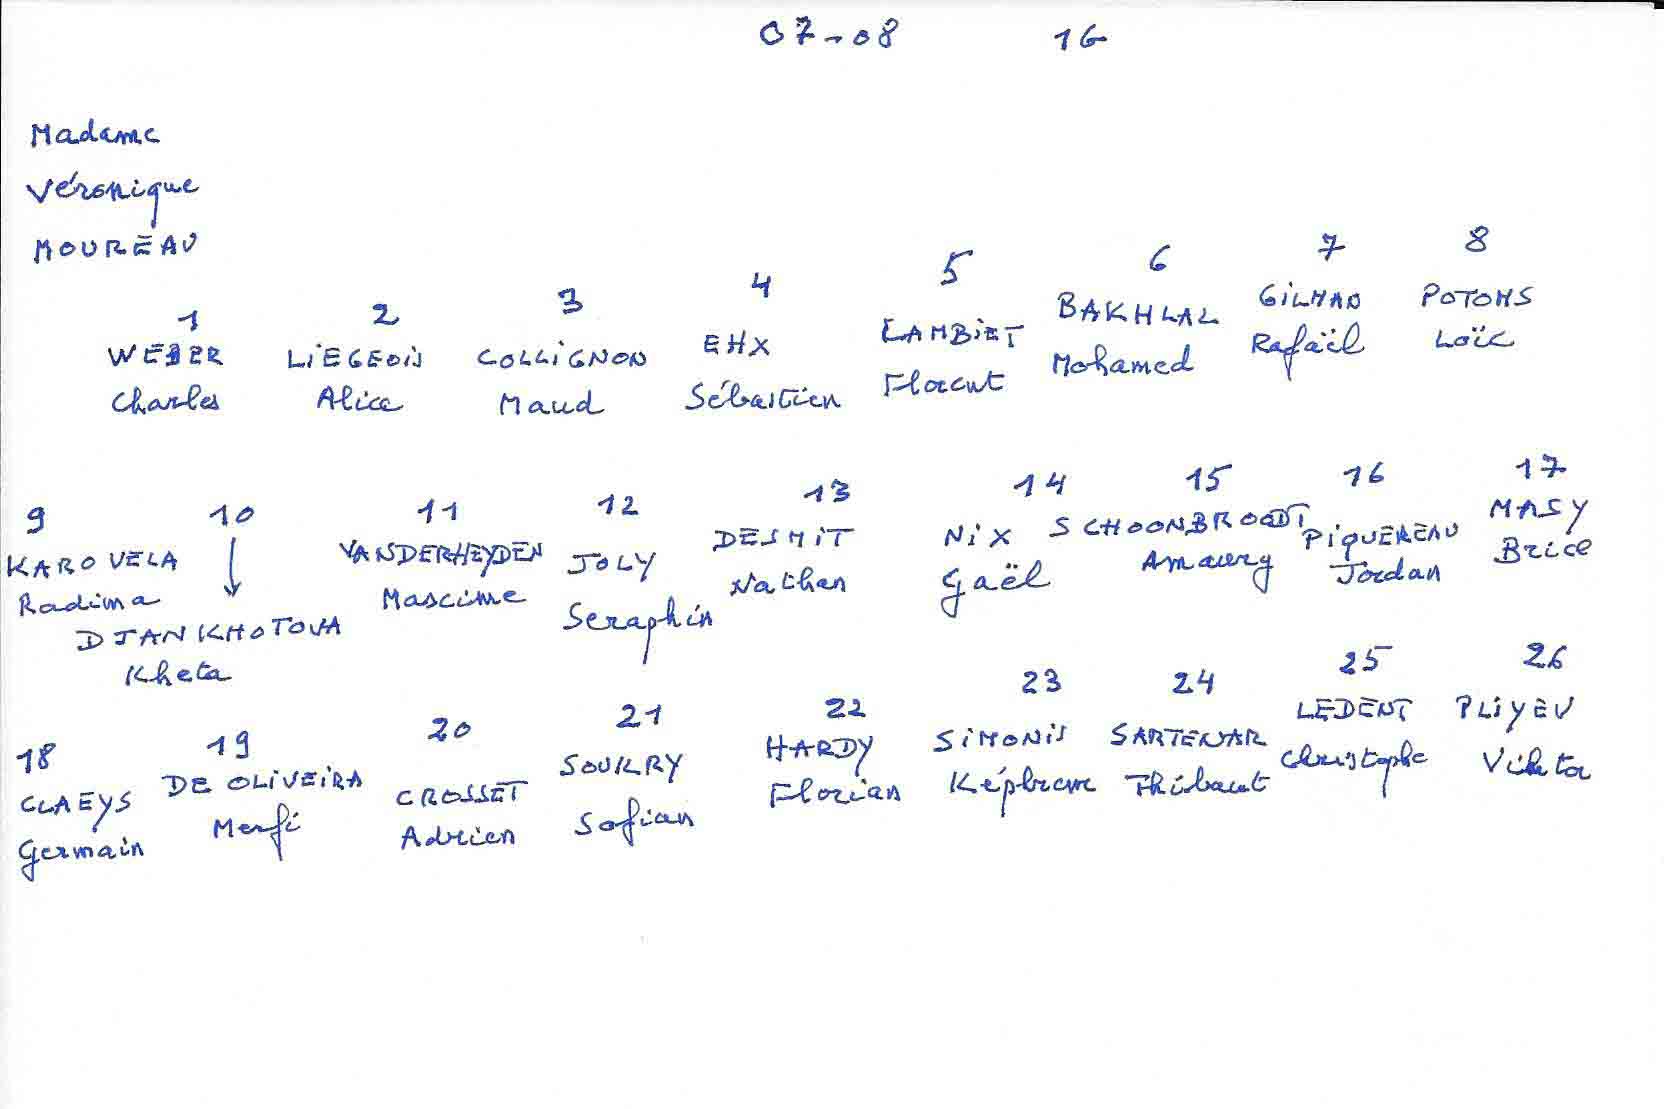 07-08 1G
Madame
Véronique
MOUREAU
1 2 3 4 5 6 7 8
WEBER LIEGEOIS COLLIGNON EHX LAMBIET BAKHLAL GILMAN POTOMS
Charles Alice Maud Sébastien Florent Mohamed Rafaël Loïc
9 10 11 12 13 14 15 16 17
KAROVELA VANDERHEYDEN JOLY DESMIT NIX SCHOONBROODT PIQUEREAU MASY
Radima Maxime Seraphin Nathan Gaël Amaury Jordan Brice
DJANKHOTOVA
Kheta
18 19 20 21 22 23 24 25 26
CLAEYS DE OLIVEIRA CROSSET HARDY SIMONIS SARTENAR LEDENT PLIYEV
Germain Adrien Sofian Florian Thibaut Christophe